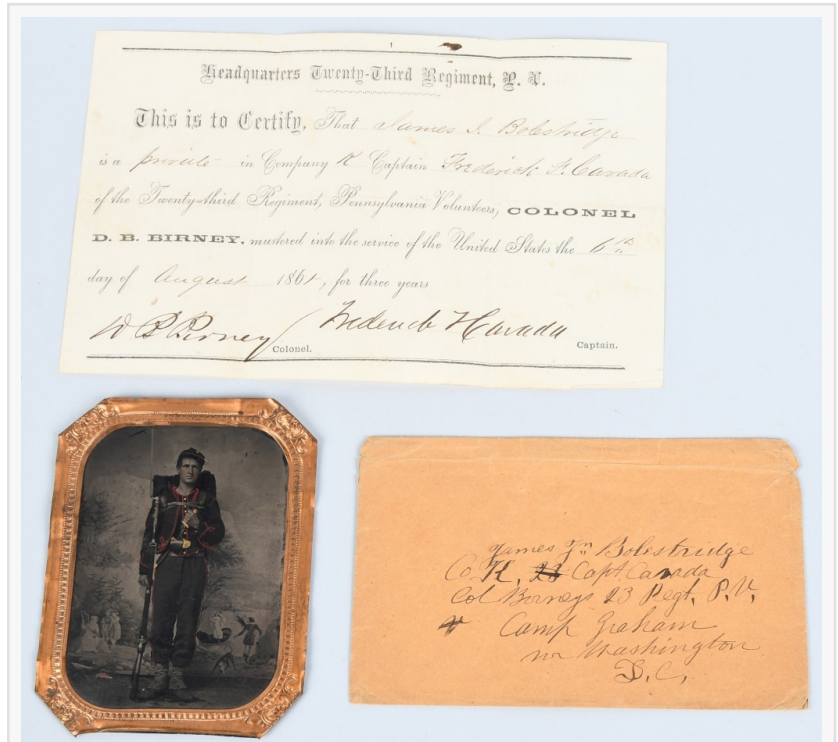 Headquarters Twenty-Third Regiment, P. V.
This is to Certify, That James J. Bolestridge
is a private in Company K Captain Frederick F. Cavada
of the Twenty-third Regiment, Pennsylvania Volunteers, COLONEL
D. B. BIRNEY, mustered into the service of the United States the 6th
day of August 1861, for three years
D B Birney Colonel. Frederick F Cavada Captain.
James Jn Bolestridge
Co K, 23 Capt Cavada
Col Birneys 23 Regt, P. V,
Camp Graham
nr Washington
D. C,